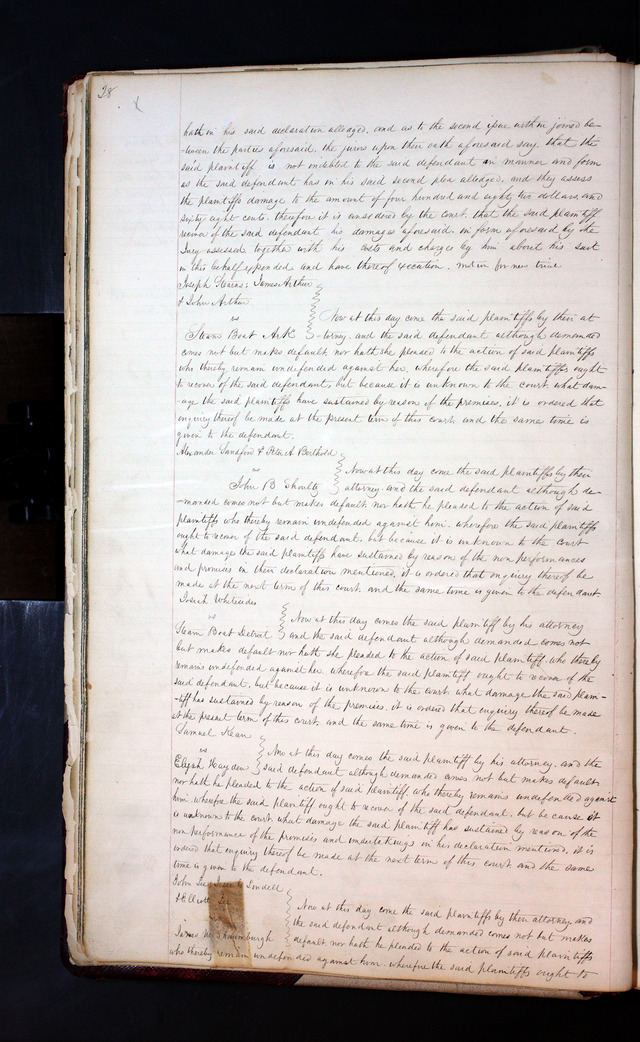 28
hath in his said declaration alledged. and as to the second issue within joined be-
-tween the parties aforesaid. the jurors upon their oath aforesaid say. that the
said plaintiff is not indebted to the said defendant in manner and form
as the said defendant has in his said second plea alledged. and they assess
the plaintiffs damage to the amount of four hundred and eighty two dollars and
sixty eight cents. therefore it is considered by the court. that the said plaintiff
recover of the said defendant his damages aforesaid in form aforesaid by the
Jury assessed together with his costs and charges by him about his suit
in this behalf expended and have thereof execution. motion for new trial
Joseph Stearns; James Arthur
& John Arthur
vs
Steam Boat Ark
Now at this day come the said plaintiffs by their at
-torney. and the said defendant although demanded
comes not but makes default, nor hath she pleaded to the action of said plaintiffs
who thereby remain undefended against her. wherefore the said plaintiffs ought
to recover of the said defendant, but because it is unknown to the court what dam-
-age the said plaintiffs have sustained by reason of the premises, it is ordered that
enquiry thereof be made at the present term of this court and the same time is
given to the defendant.
Alexander Sandford & Peter A Berthold
vs
John B Shoults
Now at this day come the said plaintiffs by their
attorney. and the said defendant although de-
-manded comes not but makes default, nor hath he pleaded to the action of said
plaintiffs who thereby remain undefended against him. wherefore the said plaintiffs
ought to recover of the said defendant. but because it is unknown to the court
what damage the said plaintiffs have sustained by reason of the non performances
and promises in their declaration mentioned, it is ordered that enquiry thereof be
made at the next term of this court. and the same time is given to the defendant
Josiah Whitesides
vs
Steam Boat Detroit
Now at this day comes the said plaintiff by his attorney
and the said defendant although demanded comes not
but makes default nor hath she pleaded to the action of said plaintiff. who thereby
remains undefended against her. wherefore the said plaintiff ought to recover of the
said defendant. but because it is unknown to the court what damage the said plain-
-tiff has sustained by reason of the premises. it is ordered that enquiry thereof be made
at the present term of this court. and the same time is given to the defendant.
Samuel Kean
vs
Elijah Hayden
Now at this day comes the said plaintiff by his attorney. and the
said defendant although demanded comes not but makes default
nor hath he pleaded to the action of said plaintiff who thereby remains undefended against
him. wherefore the said plaintiff ought to recover of the said defendant. but because it
is unknown to the court what damage the said plaintiff has sustained by reason of the
non performance of the promises and undertakings in his declaration mentioned. it is
ordered that enquiry thereof be made at the next term of this court. and the same
time is given to the defendant.
John Lee Jesse G Lindell
& Elliott Lee
James W Shaumburgh
Now at this day come the said plaintiffs by their attorney. and
the said defendant although demanded comes not but makes
default nor hath he pleaded to the action of said plaintiffs
who thereby remain undefended against him. wherefore the said plaintiffs ought to